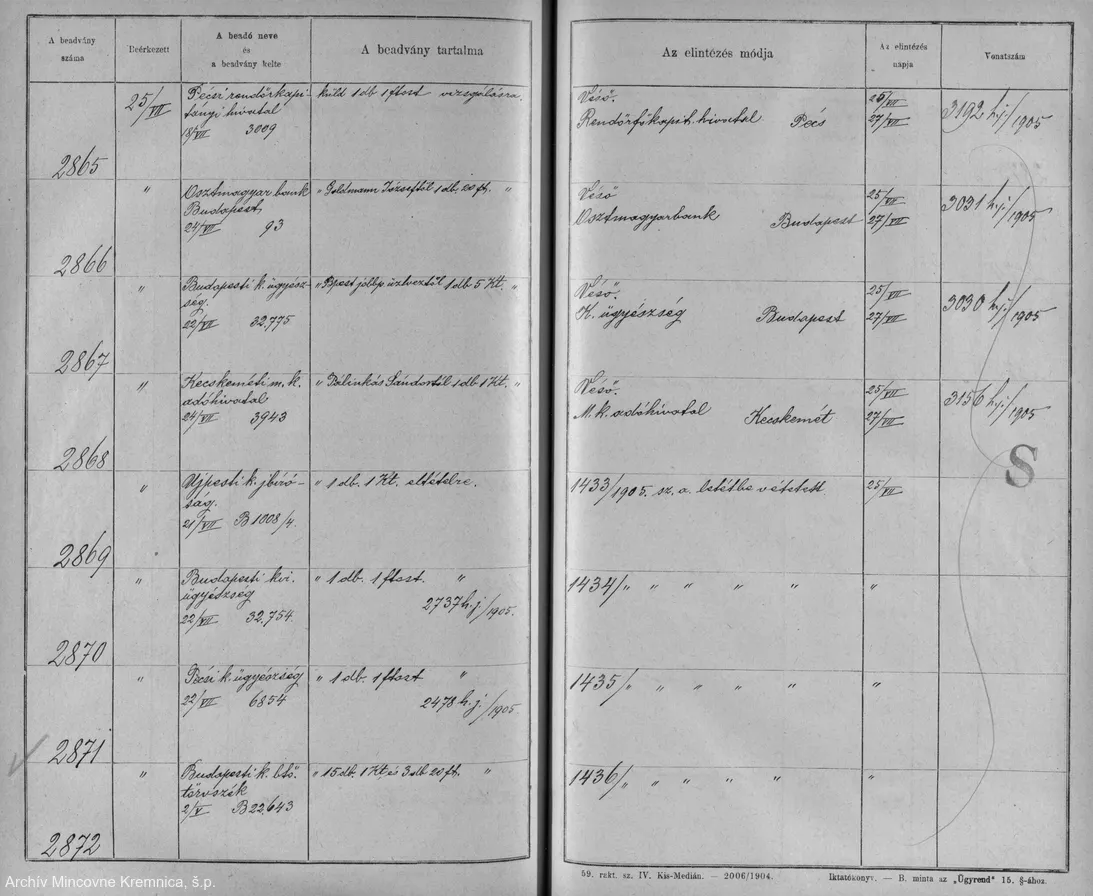 A beadvány
száma
Beérkezett
A beadó neve
és
a beadvány kelte
A beadvány tartalma
Az elintézés módja
Az elintézés
napja
Vonatszám
2865
25/VII
Pécsi rendőrkapi
tányi hivatal
18/VII 3009
küld 1 db 1 ftost vizsgálásra.
Véső.
Rendőrfőkapit. hivatal Pécs
25/VII
27/VII
3192 h.j./1905
2866
"
Osztmagyar bank
Budapest
24/VII 93
" Goldmann Józseftől 1 db. 20 ft. "
Véső
Osztmagyarbank Budapest
25/VII
27/VII
3031 h.j./1905
2867
"
Budapesti k. ügyész-
ség.
22/VII 32.775
" 1 db 5 Kt. "
Véső.
K. ügyészség Budapest
25/VII
27/VII
3030 h.j./1905
2868
"
Kecskeméti m. k.
adóhivatal
24/VII 3943
" Bálinkás Sándortól 1 db 1 Kt. "
Véső.
M. k. adóhivatal Kecskemét
25/VII
27/VII
3156 h.j./1905
S
2869
"
Ujpesti k. jbíró-
ság.
21/VII B 1008/4.
" 1 db. 1 Kt. eltételre.
1433/1905. sz. a. letétbe vétetett
25/VII
2870
"
Budapesti kir.
ügyészség
22/VII 32.754.
" 1 db. 1 ftost. "
2737 h.j./1905.
1434/" " " " "
"
2871
"
Pécsi k. ügyészség
22/VII 6854
" 1 db. 1 ftost "
2478 h.j./1905.
1435/" " " " "
"
2872
"
Budapesti k. btő.
törvszék
2/V B 22.643
" 15 db. 1 Kt. és 3 db 20 ft. "
1436/" " " " "
"
59. rakt. sz. IV. Kis-Medián. — 2006/1904.
Iktatókönyv. — B. minta az „Ügyrend" 15. §-ához.
Archív Mincovne Kremnica, š.p.